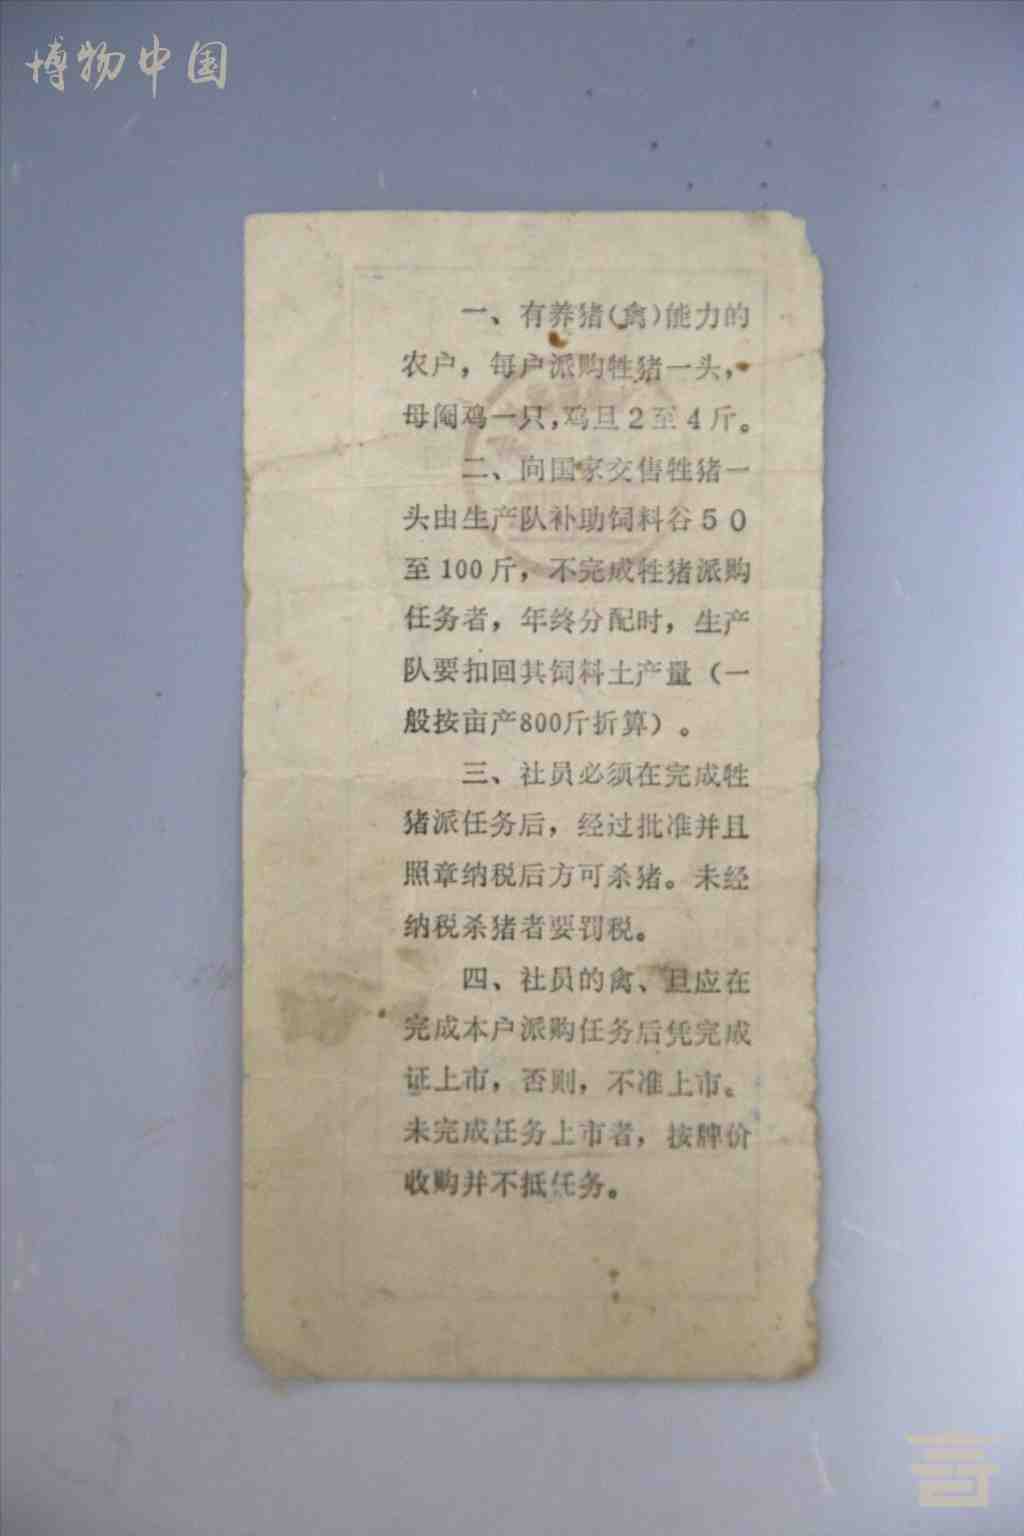 博物中国
一、有养猪(禽)能力的
农户，每户派购牲猪一头，
母阉鸡一只，鸡旦2至4斤。
二、向国家交售牲猪一
头由生产队补助饲料谷50
至100斤，不完成牲猪派购
任务者，年终分配时，生产
队要扣回其饲料土产量（一
般按亩产800斤折算）。
三、社员必须在完成牲
猪派任务后，经过批准并且
照章纳税后方可杀猪。未经
纳税杀猪者要罚税。
四、社员的禽、旦应在
完成本户派购任务后凭完成
证上市，否则，不准上市。
未完成任务上市者，按牌价
收购并不抵任务。